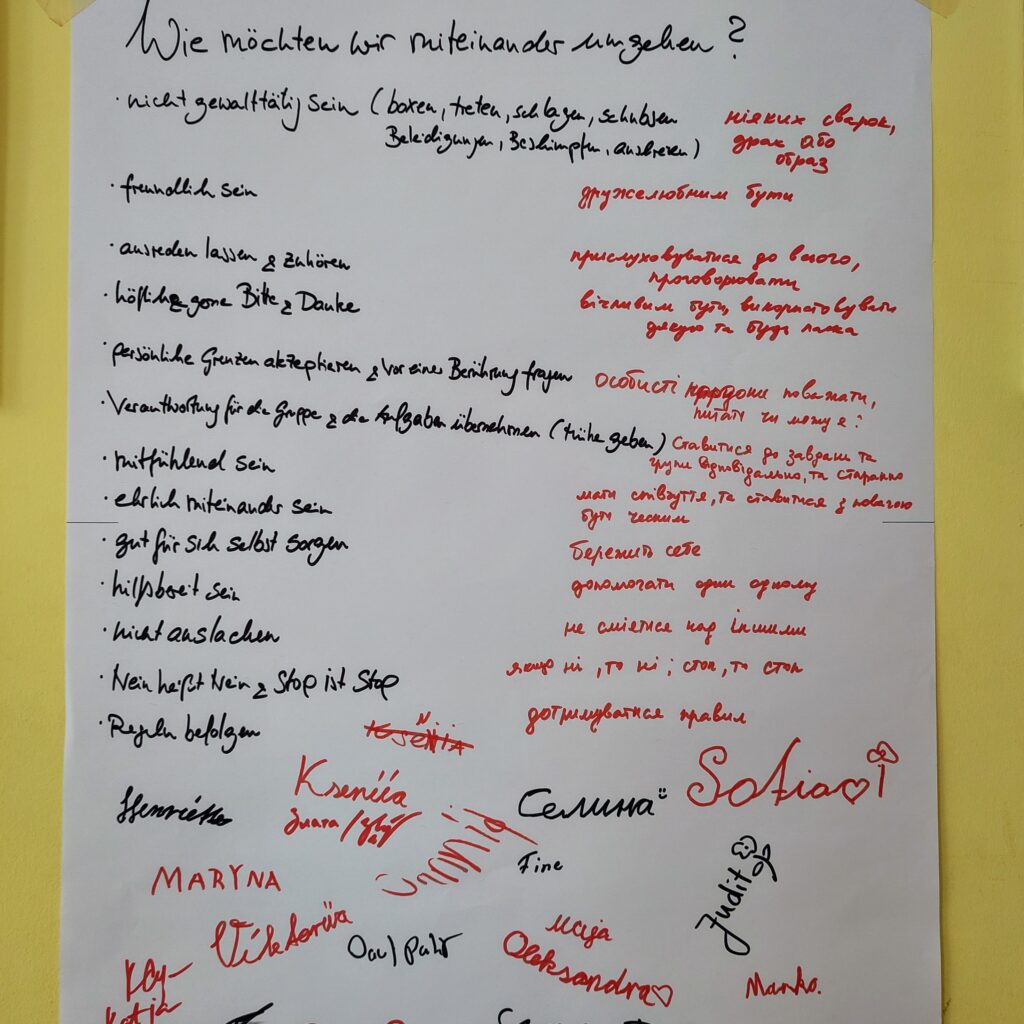 Wie möchten wir miteinander umgehen?
· nicht gewalttätig sein (boxen, treten, schlagen, schubsen
Beleidigungen, Beschimpfen, )
ніяких сварок,
драк або
образ
· freundlich sein
дружелюбним бути
· ausreden lassen & zuhören
прислуховуватися до
проговорювати
· Bitte & Danke
вічливим бути, використовувати
дякую та будь ласка
· persönliche Grenzen akzeptieren & vor einer Berührung fragen
особисті поважати,
питати чи можу я?
· Verantwortung für die Gruppe & die Aufgaben übernehmen ( geben)
Ставитися до завдань та
групи відповідально, та старанно
· mitfühlend sein
· ehrlich miteinander sein
мати співчуття, та ставитися з повагою
бути чесним
· gut für sich selbst sorgen
бережить себе
· hilfsbereit sein
допомогати один одному
· nicht auslachen
не сміятися над іншими
· Nein heißt Nein & Stop ist Stop
якщо ні, то ні; стоп, то стоп
· Regeln befolgen
дотримуватися правил
Kseniia
Селина
Sofia
Fine
MARYNA
Judit
Viktoriia
Oleksandra
Marko.
Katja